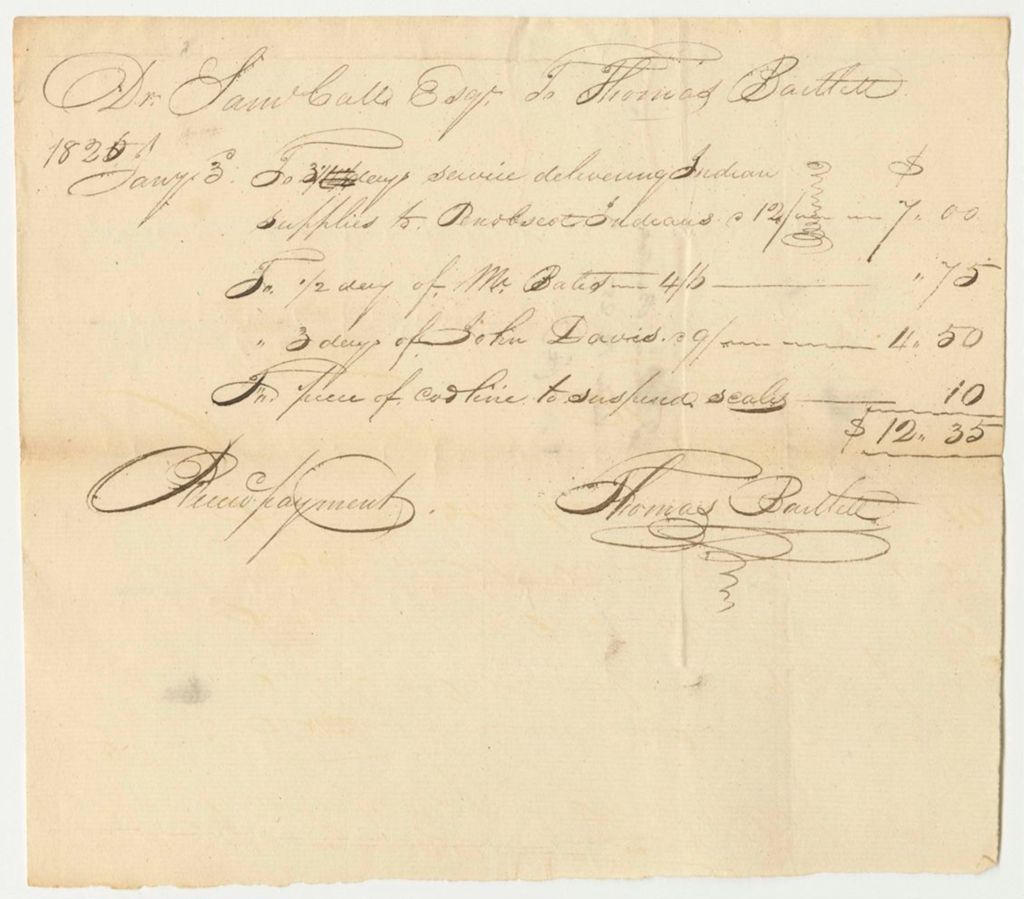 Dr. Saml Call Esqr. To Thomas Bartlett
1826
Jany 3d. To 3 1/2 days service delivering Indian $
supplies to Penobscot Indians @ 12/ 7.00
To 1/2 day of Mr. 4/6 " 75
" 3 days of John Davis @ 9/ 4.50
To piece of codline to suspend scales 10
$12.35
Recd payment. Thomas Bartlett